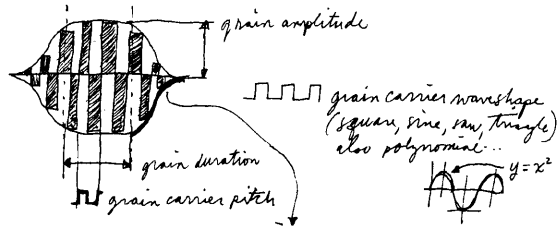 grain amplitude
grain carrier waveshape
(square, sine, saw, triangle)
also polynomial...
y = x²
grain duration
grain carrier pitch